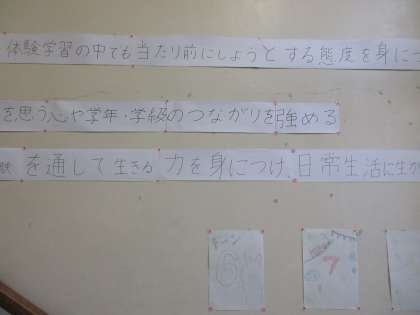 体験学習の中でも当たり前にしようとする態度を身に
を思う心や学年・学級のつながりを強める
を通して生きる力を身につけ、日常生活に生か
6
7